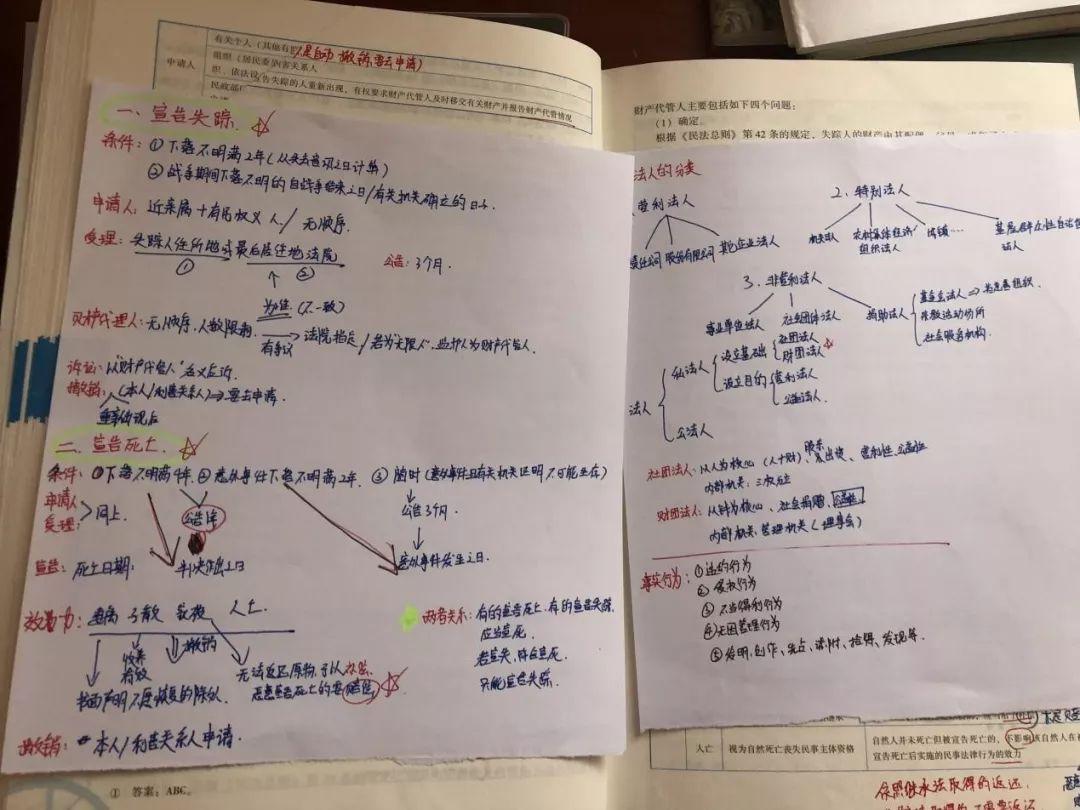 有关个人（其他有
是自动 撤销需去申请）
申请人
组织（居民委
害关系人
织、依法设
告失踪的人重新出现，有权要求财产代管人及时移交有关财产并报告财产代管情况
民政部
一、宣告失踪
条件：① 下落不明满2年（从失去音讯之日计算）
② 战争期间下落不明的自战争结束之日/有关机关确立的日子.
申请人：近亲属＋有民权义人/无顺序.
受理：失踪人住所地或最后居住地法院
① ②
公告：3个月.
为准（不一致）
财产代理人：无顺序，人数限制，
有争议
法院指定/若为无限人，监护人为财产代管人.
诉讼：以"财产代管人"名义应诉.
撤销：（本人/利害关系人）⇒要去申请.
重新出现后
二、宣告死亡.
条件：①下落不明满4年 ②意外事件下落不明满2年. ③ 随时（意外事件且有关机关证明不可能生存）
申请人
受理：
同上.
公告1年
公告3个月.
宣告：死亡日期：
判决作出之日
意外事件发生之日.
效力：
收养
有效
撤销
书面声明不愿恢复的除外.
无法返还原物，予以补偿.
恶意宣告死亡的要赔偿
两者关系：有的宣告死亡、有的宣告失踪.
应当宣死.
只能宣告失踪.
撤销：本人/利害关系人申请.
① 答案：ABC。
财产代管人主要包括如下四个问题：
（1）确定。
根据《民法总则》第42条的规定，失踪人的财产由其配偶、
法人的分类
营利法人
责任公司 股份有限公司 其它企业法人
2. 特别法人
机关法人 农村集体经济
组织法人
基层群众性自治
法人
3. 非营利法人
事业单位法人 社会团体法人 捐助法人
基金会法人
宗教活动场所
社会服务机构.
法人
私法人
设立基础
社团法人
财团法人
设立目的
营利法人
公益法人.
公法人
社团法人：以人为核心
股东
、营利性、公益性
内部机关：三权分立
财团法人：以财为核心、社会捐赠、公益性
内部机关：管理机关（理事会）
事实行为：①违约行为
② 侵权行为
③ 不当得利行为
④ 无因管理行为
⑤ 发明、创作、先占、添附、拾得、发现等.
人亡
视为自然死亡丧失民事主体资格
自然人并未死亡但被宣告死亡的，不影响该自然人在被
宣告死亡后实施的民事法律行为的效力
依照继承法取得的返还